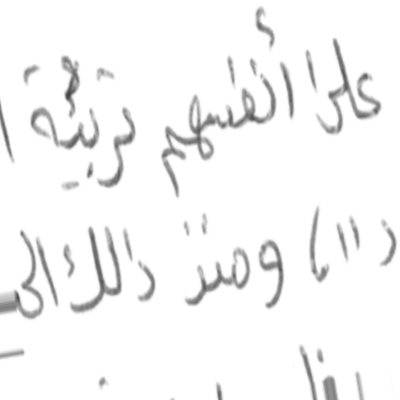 على أنفسهم تربية
(١١) ومنذ ذلك الى